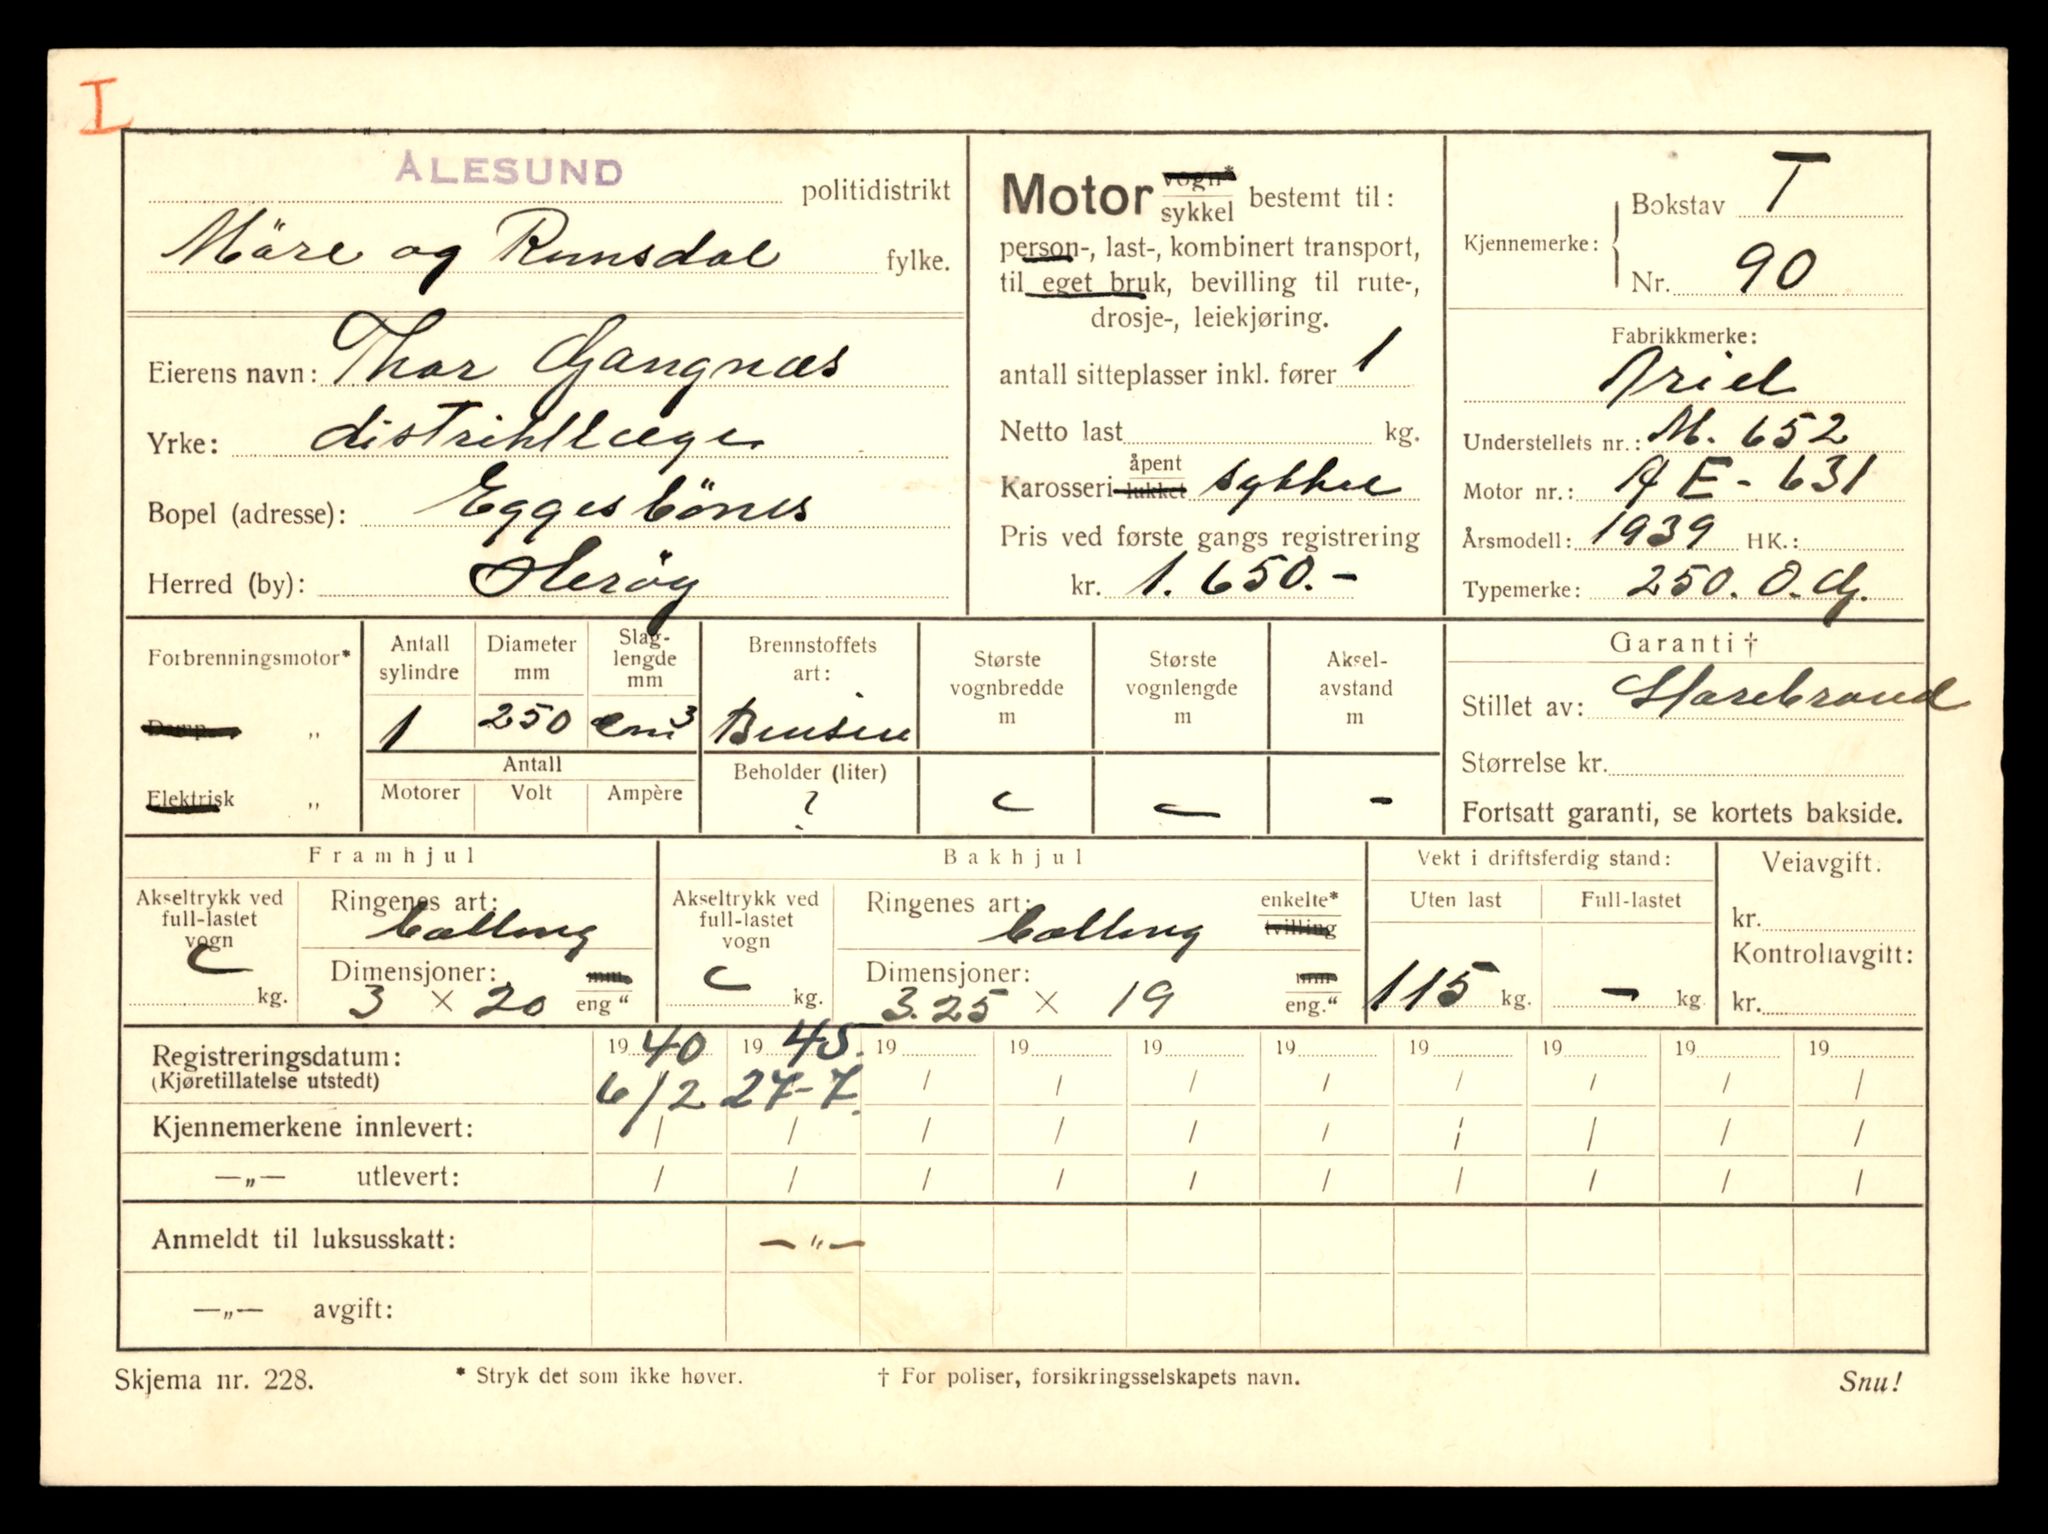 I
ÅLESUND politidistrikt
Möre og Rumsdal fylke.
Eierens navn: Thor Gangnæs
Yrke: distriktlæge
Bopel (adresse): Eggesbönes
Herred (by): Herøy
Motor vogn* sykkel bestemt til:
person-, last-, kombinert transport,
til eget bruk, bevilling til rute-,
drosje-, leiekjøring.
antall sitteplasser inkl. fører 1
Netto last kg.
Karosseri åpent lukket sykkel
Pris ved første gangs registrering
kr. 1.650.-
Kjennemerke: Bokstav T
Nr. 90
Fabrikkmerke:
Ariel
Understellets nr.: M. 652
Motor nr.: AE-631
Årsmodell: 1939 HK.:
Typemerke: 250. O.G.
Forbrenningsmotor*
Damp „
Elektrisk „
Antall sylindre
1
Diameter mm
250
Slag-lengde mm
cm³
Antall
Motorer Volt Ampère
Brennstoffets art:
Bensin
Beholder (liter)
?
Største vognbredde m
Største vognlengde m
—
Aksel-avstand m
-
Garanti †
Stillet av: Storebrand
Størrelse kr.
Fortsatt garanti, se kortets bakside.
Framhjul
Akseltrykk ved full-lastet vogn
kg.
Ringenes art: Ballong
Dimensjoner: mm.
3 × 20 eng“
Bakhjul
Akseltrykk ved full-lastet vogn
kg.
Ringenes art: Ballong enkelte* tvilling
Dimensjoner: mm
3.25 × 19 eng.“
Vekt i driftsferdig stand:
Uten last Full-lastet
115 kg. — kg.
Veiavgift.
kr.
Kontrollavgift:
kr.
Registreringsdatum: 1940 1945. 19 19 19 19 19 19 19 19
(Kjøretillatelse utstedt) 6/2 27-7. / / / / / / / /
Kjennemerkene innlevert: / / / / / / / / / /
—„— utlevert: / / / / / / / / / /
Anmeldt til luksusskatt: —„—
—„— avgift:
Skjema nr. 228. * Stryk det som ikke høver. † For poliser, forsikringsselskapets navn. Snu!